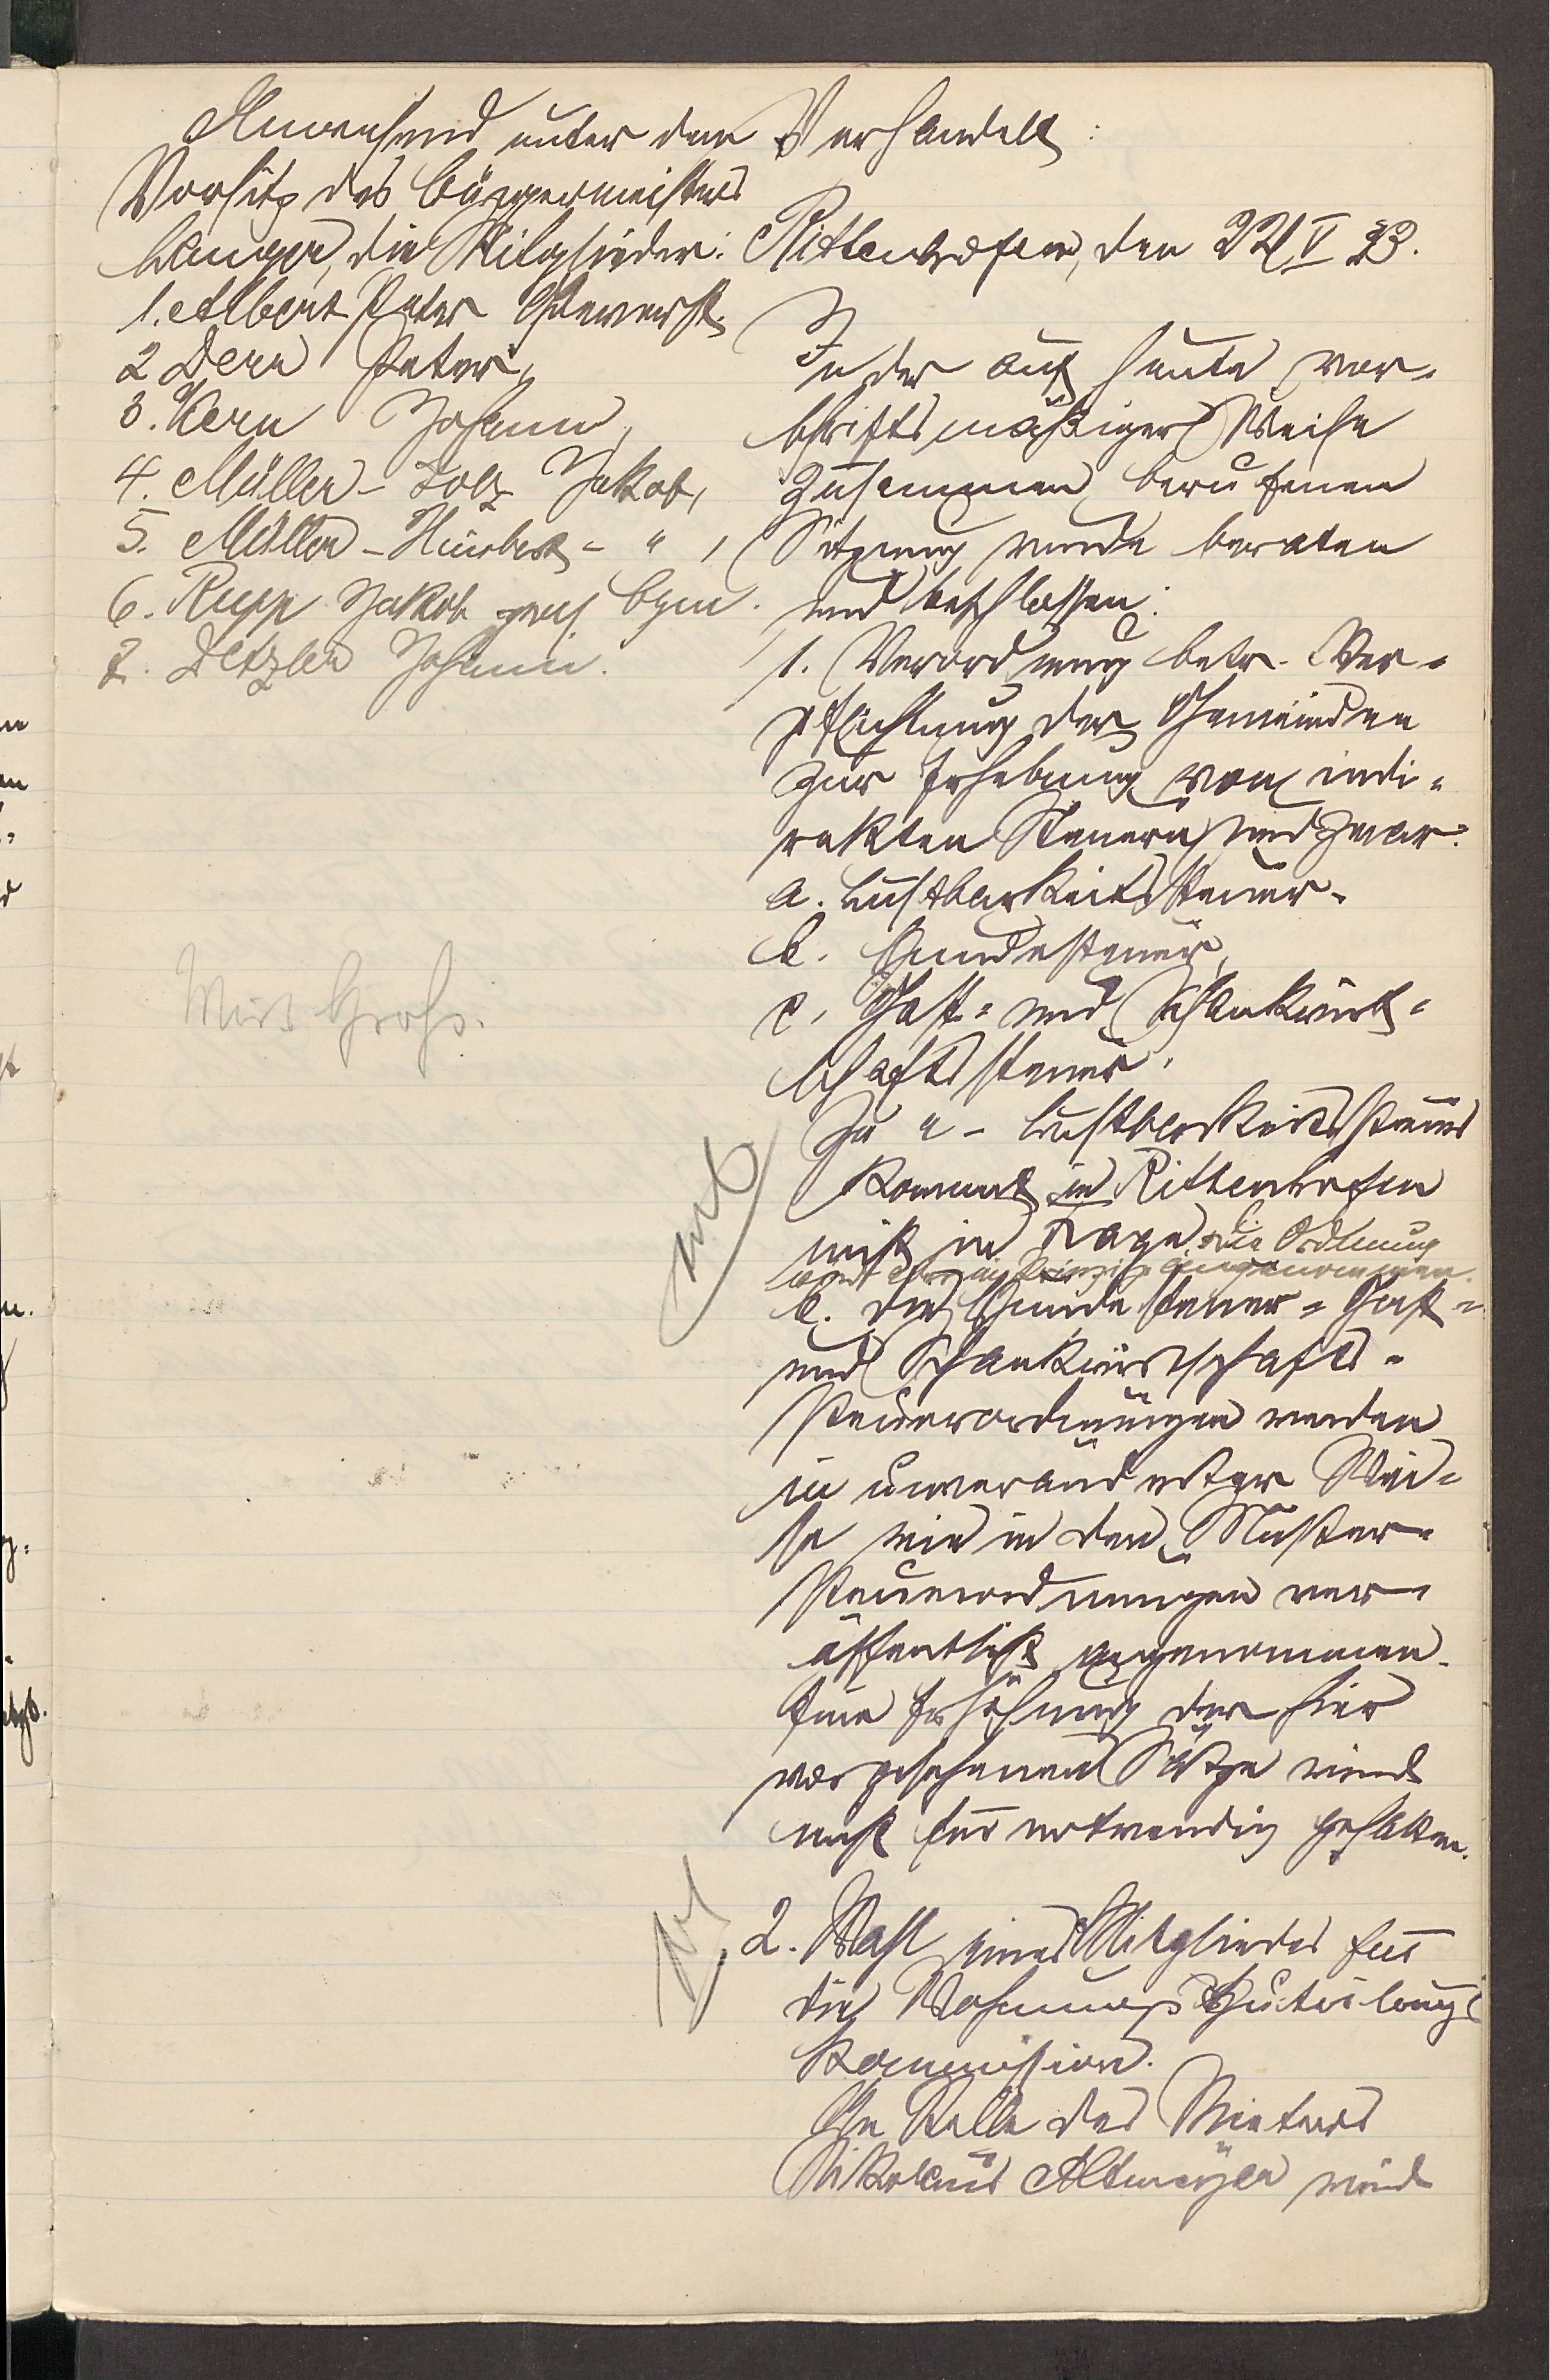 Anwesend unter dem
Vorsitz des Bürgermeisters
Langer, die Mitglieder:
1. Albert Peter
2 Derr Peter,
3. Kern Johann,
4. Müller-Folz Jakob,
5. Müller- - " ,
6. Rupp Jakob
7. Detzler Johann.
Wirt Groß.
Verhandelt:
Rittenhofen, den 22/V 23.
In der auf heute vor-
schriftsmäßiger Weise
zusammen berufenen
Sitzung wurde beraten
und beschlossen:
1. Verordnung betr. Ver-
pflichtung der Gemeinden
zur Erhebung von indi-
rekten Steuern und zwar:
a. Lustbarkeitssteuer.
b. Hundesteuer,
c, Gast- und Schankwirt-
schaftssteuer.
Zu a - Lustbarkeitssteuer
kommt in Rittenhofen
nicht in Frage. Die Ordnung
wird im Prinzip angenommen.
b. die Hundesteuer- Gast-
und Schankwirtschafts-
steuerordnungen werden
in unveränderter Wei-
se wie in den Muster-
steuerordnungen ver-
öffentlicht angenommen.
Eine Erhöhung der hier
vorgesehenen Sätze wird
nicht für notwendig gehalten.
2. Wahl eines Mitgliedes für
die Wohnungszuteilungs
kommission.
An Stelle des Mieters
Nikolaus Altmeyer wird